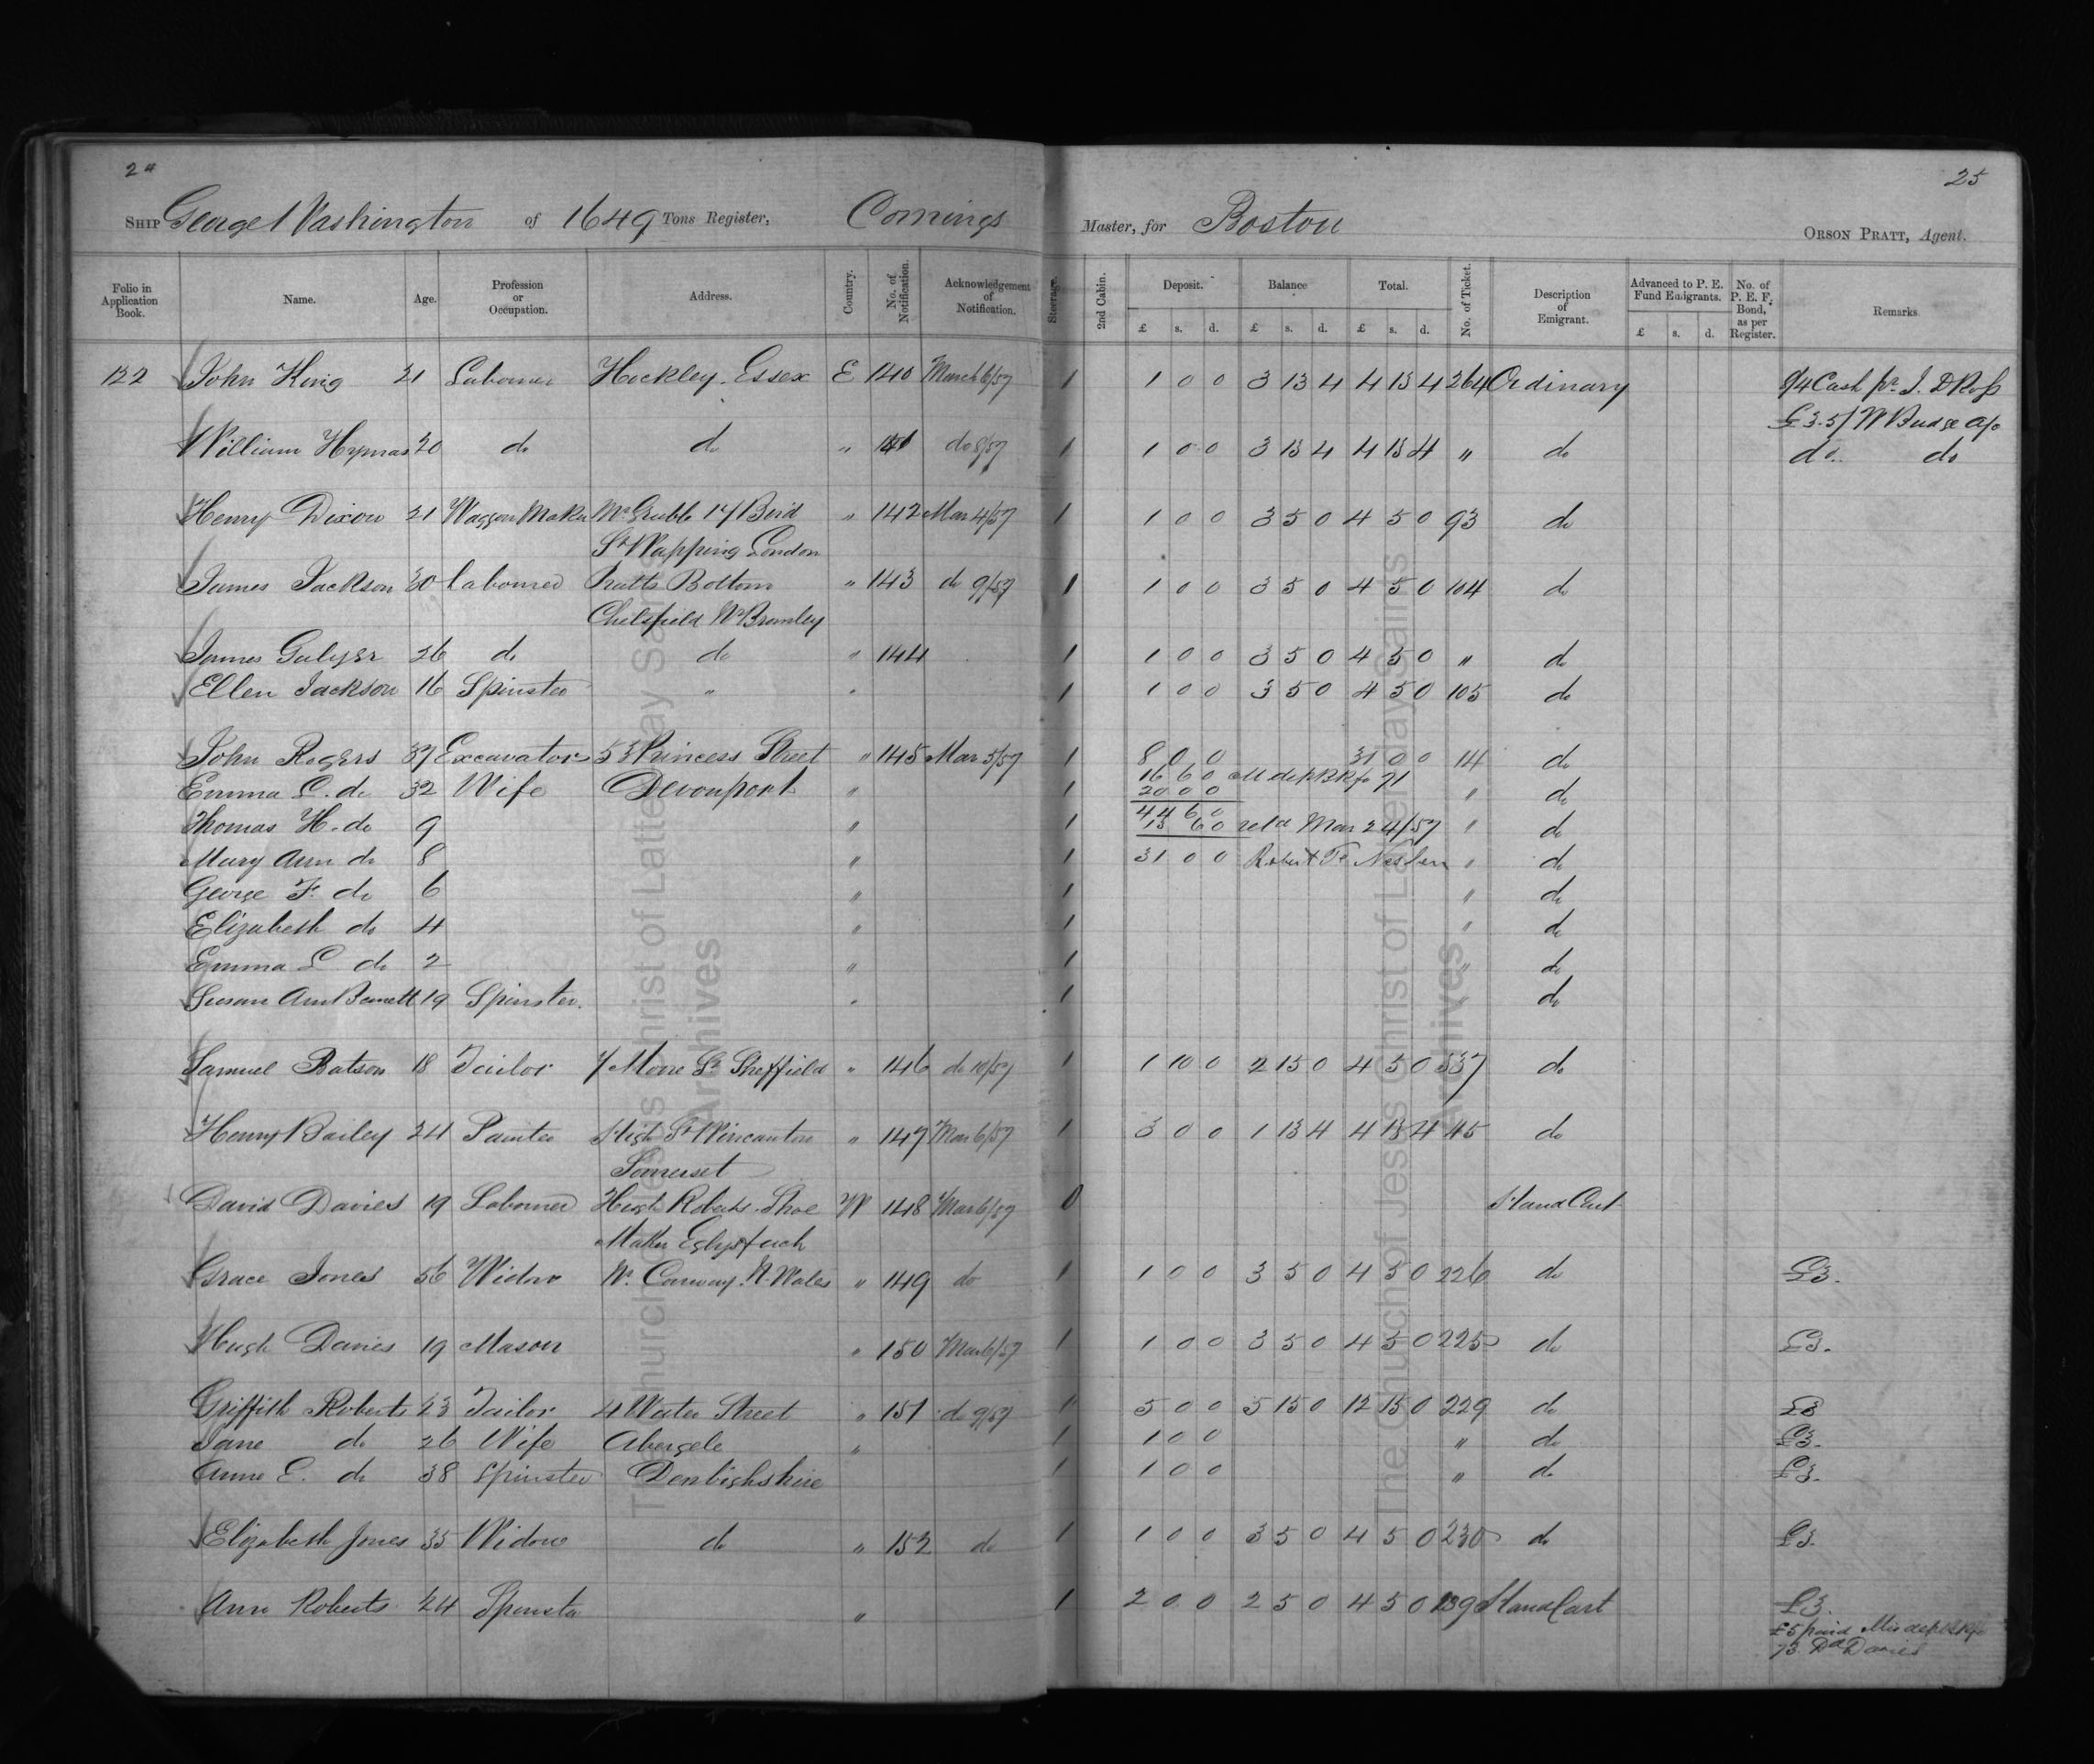 24
25
SHIP George Washington of 1649 Tons Register, Comings Master, for Boston ORSON PRATT, Agent.
Folio in Application Book. Name. Age. Profession or Occupation. Address. Country. No. of Notification. Acknowledgement of Notification. Steerage. 2nd Cabin. Deposit. Balance Total. No. of Ticket. Description of Emigrant. Advanced to P. E. Fund Emigrants. No. of P. E. F. Bond, as per Register. Remarks.
£ s. d. £ s. d. £ s. d. £ s. d.
122 John King 21 Labourer Hockley. Essex E 140 March 6/57 1 1 0 0 3 13 4 4 13 4 264 Ordinary 8/4 Cash pr. J. D Ross
£3.5/ W Budge a/c
William Hymas 20 do do " 141 do 8/57 1 1 0 0 3 13 4 4 13 4 " do do. do
Henry Dixon 21 Waggon Maker Mr Grubb 17 Bird " 142 Mar 4/57 1 1 0 0 3 5 0 4 5 0 93 do
St Wapping London
James Jackson 30 Labourer Pratts Bottom " 143 do 9/57 1 1 0 0 3 5 0 4 5 0 104 do
Chelsfield Nr Bromley
James Gulyer 26 do do " 144 1 1 0 0 3 5 0 4 5 0 " do
Ellen Jackson 16 Spinster " " 1 1 0 0 3 5 0 4 5 0 105 do
John Rogers 37 Excavator 53 Princess Street " 145 Mar 5/57 1 8 0 0 31 0 0 14 do
16 6 0 71
Emma L. do 32 Wife Devonport " 1 20 0 0 " do
44 6 0
Thomas H. do 9 " 1 13 6 0 retd Mar 24/57 " do
Mary Ann do 8 " 1 31 0 0 Robert F. Neslen " do
George F. do 6 " 1 " do
Elizabeth do 4 " 1 " do
Emma L. do 2 " 1 " do
Susan Ann Bennett 19 Spinster. " 1 " do
Samuel Batson 18 Tailor 7 More St Sheffield " 146 do 10/57 1 1 10 0 2 15 0 4 5 0 537 do
Henry Bailey 24 Painter High St Wincanton " 147 Mar 6/57 1 3 0 0 1 13 4 4 13 4 45 do
Somerset
David Davies 19 Labourer Hugh Roberts. Shoe W 148 Mar 6/57 0 Hand Cart
Maker Eglysfach
Grace Jones 56 Widow Nr. Conway. N. Wales " 149 do 1 1 0 0 3 5 0 4 5 0 226 do £3.
Hugh Davies 19 Mason " 150 Mar 6/57 1 1 0 0 3 5 0 4 5 0 225 do £3.
Griffith Roberts 23 Tailor 4 Water Street " 151 do 9/57 1 5 0 0 5 15 0 12 15 0 229 do £3
Jane do 26 Wife Abergele " 1 1 0 0 " do £3.
Anne E. do 38 Spinster Denbighshire 1 1 0 0 " do £3.
Elizabeth Jones 35 Widow do " 152 do 1 1 0 0 3 5 0 4 5 0 230 do £3.
Ann Roberts 24 Spinster " 1 2 0 0 2 5 0 4 5 0 Hand Cart £3.
£5 paid
73 Dd Davies
The Church of Jesus Christ of Latter-day Saints
Archives
The Church of Jesus Christ of Latter-day Saints
Archives